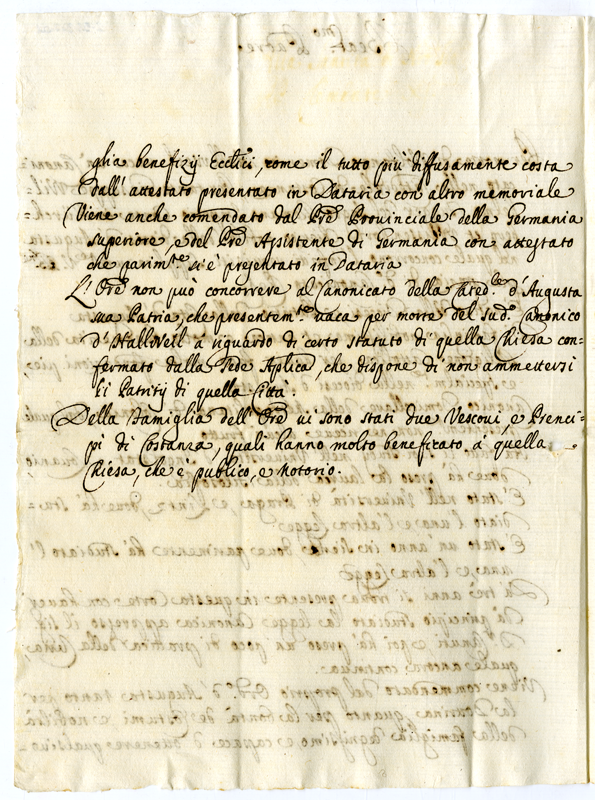 glia benefizij Eccl.ci, come il tutto più diffusamente costa
dall'attestato presentato in Dataria con altro memoriale
Viene anche comendato dal Pre Provinciale della Germania
superiore, e del Pre Assistente di Germania con attestato
che parim.te si è presentato in Dataria
L'Ore non può concorrere al Canonicato della Cated.le d'Augusta
sua Patria, che presentem.te vaca per morte del sud.o Canonico
d'HallWeil à riguardo di certo statuto di quella Chiesa con=
fermato dalla Sede Aplica, che dispone di non ammettersi
li Patritij di quella Città.
Della Famiglia dell'Ore vi sono stati due Vescovi, e Prenci=
pi di Costanza, quali hanno molto beneficato à quella
Chiesa, che è publico, e notorio.